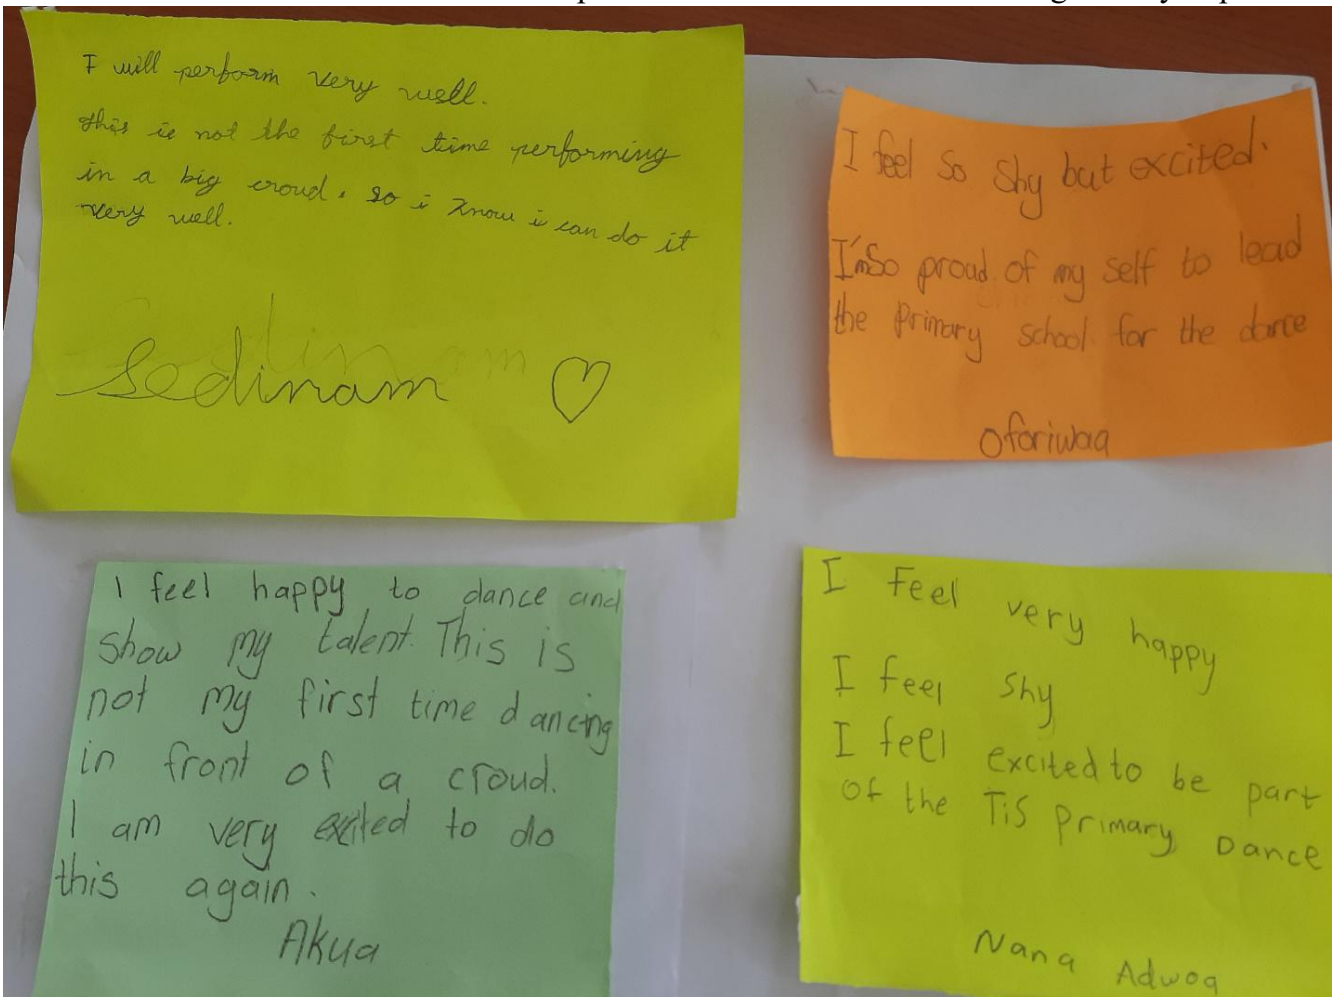 I will perform very well.
this is not the first time performing
in a big croud. so i know i can do it
very well.
Sedinam
I feel so shy but excited.
I'm so proud of my self to lead
the primary school for the dance
Oforiwaa
I feel happy to dance and
show my talent. This is
not my first time dancing
in front of a croud.
I am very excited to do
this again.
Akua
I Feel very happy
I feel shy
I feel excited to be part
of the TiS primary Dance
Nana Adwoa